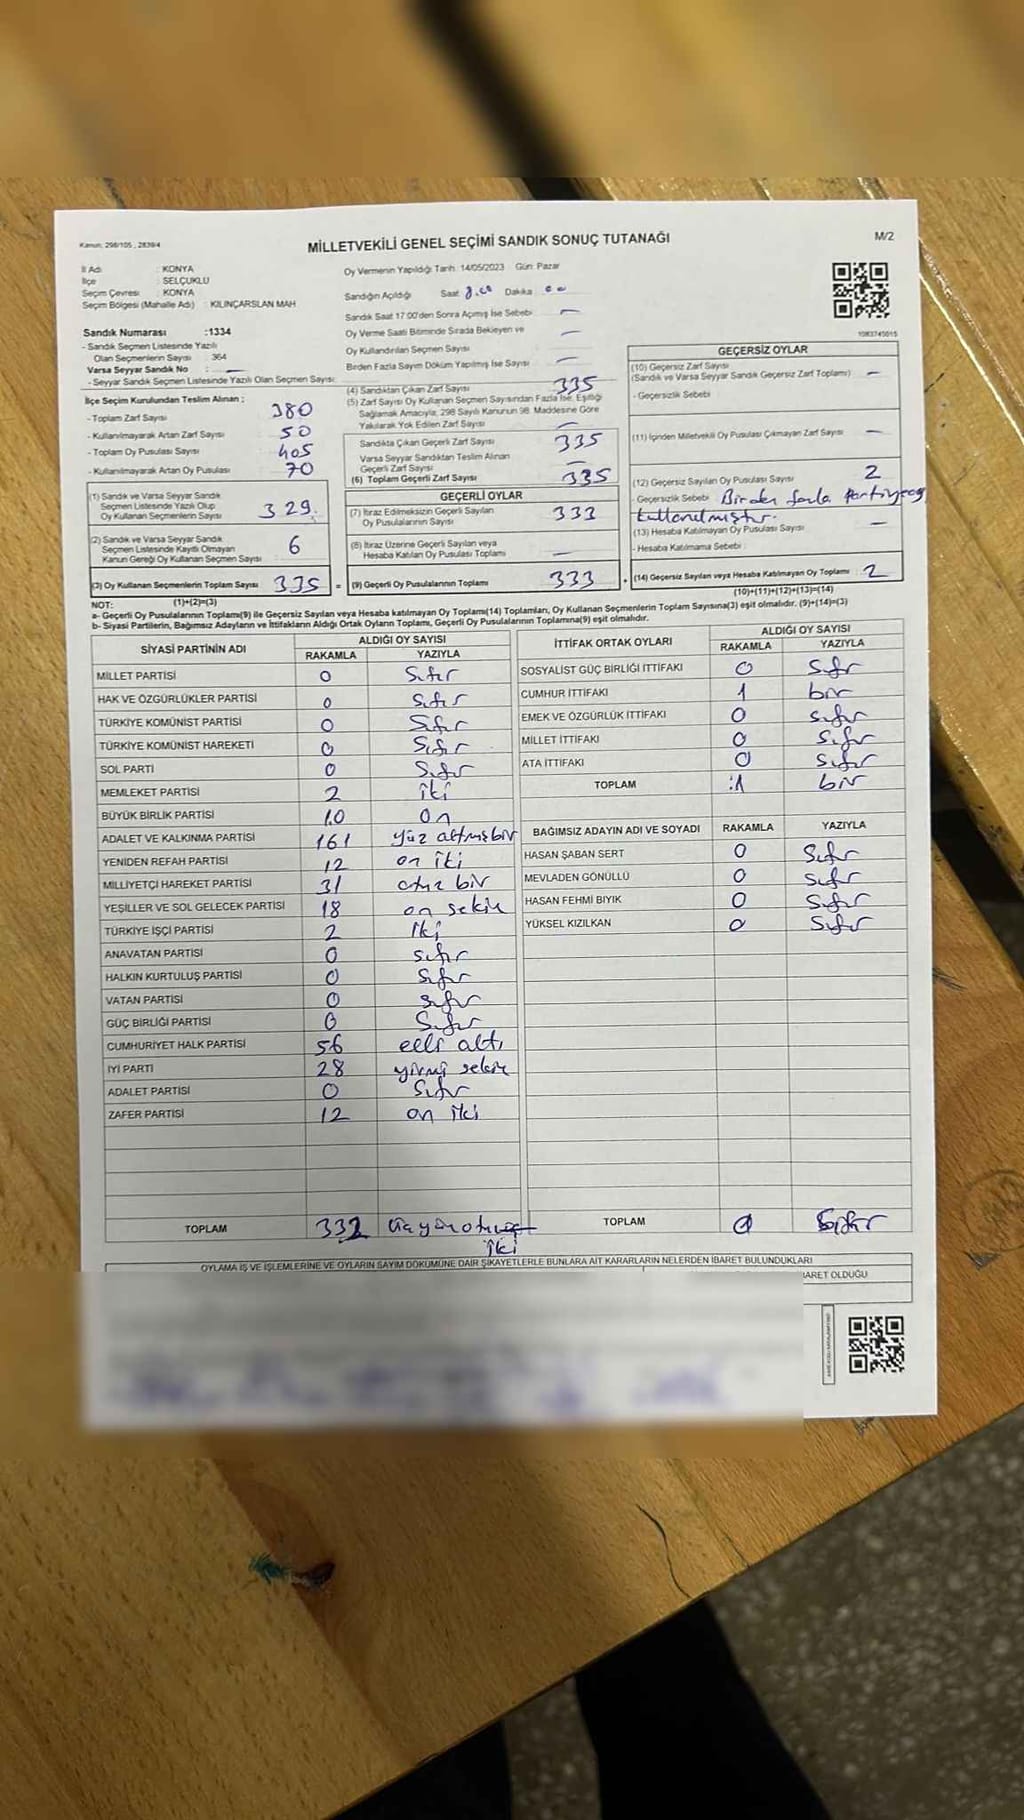 Kanun: 298/105 , 2839/4
MİLLETVEKİLİ GENEL SEÇİMİ SANDIK SONUÇ TUTANAĞI
M/2
İl Adı : KONYA
İlçe : SELÇUKLU
Seçim Çevresi : KONYA
Seçim Bölgesi (Mahalle Adı) : KILINÇARSLAN MAH
Sandık Numarası :1334
- Sandık Seçmen Listesinde Yazılı
Olan Seçmenlerin Sayısı : 364
Varsa Seyyar Sandık No : —
- Seyyar Sandık Seçmen Listesinde Yazılı Olan Seçmen Sayısı:
İlçe Seçim Kurulundan Teslim Alınan :
- Toplam Zarf Sayısı 380
- Kullanılmayarak Artan Zarf Sayısı 50
- Toplam Oy Pusulası Sayısı 405
- Kullanılmayarak Artan Oy Pusulası 70
(1) Sandık ve Varsa Seyyar Sandık
Seçmen Listesinde Yazılı Olup
Oy Kullanan Seçmenlerin Sayısı 329
(2) Sandık ve Varsa Seyyar Sandık
Seçmen Listesinde Kayıtlı Olmayan
Kanun Gereği Oy Kullanan Seçmen Sayısı 6
(3) Oy Kullanan Seçmenlerin Toplam Sayısı 335 =
(1)+(2)=(3)
Oy Vermenin Yapıldığı Tarih: 14/05/2023 Gün: Pazar
Sandığın Açıldığı Saat 8.00 Dakika 00
Sandık Saat 17:00'den Sonra Açılmış İse Sebebi —
Oy Verme Saati Bitiminde Sırada Bekleyen ve —
Oy Kullandırılan Seçmen Sayısı
Birden Fazla Sayım Döküm Yapılmış İse Sayısı —
(4) Sandıktan Çıkan Zarf Sayısı 335
(5) Zarf Sayısı Oy Kullanan Seçmen Sayısından Fazla İse, Eşitliği
Sağlamak Amacıyla, 298 Sayılı Kanunun 98. Maddesine Göre
Yakılarak Yok Edilen Zarf Sayısı —
Sandıkta Çıkan Geçerli Zarf Sayısı 335
Varsa Seyyar Sandıktan Teslim Alınan
Geçerli Zarf Sayısı —
(6) Toplam Geçerli Zarf Sayısı 335
GEÇERLİ OYLAR
(7) İtiraz Edilmeksizin Geçerli Sayılan
Oy Pusulalarının Sayısı 333
(8) İtiraz Üzerine Geçerli Sayılan veya
Hesaba Katılan Oy Pusulası Toplamı —
(9) Geçerli Oy Pusulalarının Toplamı 333 +
1083745015
GEÇERSİZ OYLAR
(10) Geçersiz Zarf Sayısı
(Sandık ve Varsa Seyyar Sandık Geçersiz Zarf Toplamı) —
- Geçersizlik Sebebi :
(11) İçinden Milletvekili Oy Pusulası Çıkmayan Zarf Sayısı —
(12) Geçersiz Sayılan Oy Pusulası Sayısı 2
- Geçersizlik Sebebi : Birden fazla Partiye oy
kullanılmıştır.
(13) Hesaba Katılmayan Oy Pusulası Sayısı —
- Hesaba Katılmama Sebebi :
(14) Geçersiz Sayılan veya Hesaba Katılmayan Oy Toplamı 2
(10)+(11)+(12)+(13)=(14)
NOT:
a- Geçerli Oy Pusulalarının Toplamı(9) ile Geçersiz Sayılan veya Hesaba katılmayan Oy Toplamı(14) Toplamları, Oy Kullanan Seçmenlerin Toplam Sayısına(3) eşit olmalıdır. (9)+(14)=(3)
b- Siyasi Partilerin, Bağımsız Adayların ve İttifakların Aldığı Ortak Oyların Toplamı, Geçerli Oy Pusulalarının Toplamına(9) eşit olmalıdır.
SİYASİ PARTİNİN ADI ALDIĞI OY SAYISI
RAKAMLA YAZIYLA
MİLLET PARTİSİ 0 Sıfır
HAK VE ÖZGÜRLÜKLER PARTİSİ 0 Sıfır
TÜRKİYE KOMÜNİST PARTİSİ 0 Sıfır
TÜRKİYE KOMÜNİST HAREKETİ 0 Sıfır
SOL PARTİ 0 Sıfır
MEMLEKET PARTİSİ 2 iki
BÜYÜK BİRLİK PARTİSİ 10 on
ADALET VE KALKINMA PARTİSİ 161 yüz altmış bir
YENİDEN REFAH PARTİSİ 12 on iki
MİLLİYETÇİ HAREKET PARTİSİ 31 otuz bir
YEŞİLLER VE SOL GELECEK PARTİSİ 18 on sekiz
TÜRKİYE İŞÇİ PARTİSİ 2 İki
ANAVATAN PARTİSİ 0 sıfır
HALKIN KURTULUŞ PARTİSİ 0 Sıfır
VATAN PARTİSİ 0 sıfır
GÜÇ BİRLİĞİ PARTİSİ 0 Sıfır
CUMHURİYET HALK PARTİSİ 56 elli altı
İYİ PARTİ 28 yirmi sekiz
ADALET PARTİSİ 0 Sıfır
ZAFER PARTİSİ 12 on iki
TOPLAM 332 Üçyüzotuz
iki
İTTİFAK ORTAK OYLARI ALDIĞI OY SAYISI
RAKAMLA YAZIYLA
SOSYALİST GÜÇ BİRLİĞİ İTTİFAKI 0 Sıfır
CUMHUR İTTİFAKI 1 bir
EMEK VE ÖZGÜRLÜK İTTİFAKI 0 sıfır
MİLLET İTTİFAKI 0 Sıfır
ATA İTTİFAKI 0 Sıfır
TOPLAM :1 bir
BAĞIMSIZ ADAYIN ADI VE SOYADI RAKAMLA YAZIYLA
HASAN ŞABAN SERT 0 Sıfır
MEVLADEN GÖNÜLLÜ 0 Sıfır
HASAN FEHMİ BIYIK 0 Sıfır
YÜKSEL KIZILKAN 0 Sıfır
TOPLAM 0 Sıfır
OYLAMA İŞ VE İŞLEMLERİNE VE OYLARIN SAYIM DÖKÜMÜNE DAİR ŞİKAYETLERLE BUNLARA AİT KARARLARIN NELERDEN İBARET BULUNDUKLARI
İBARET OLDUĞU